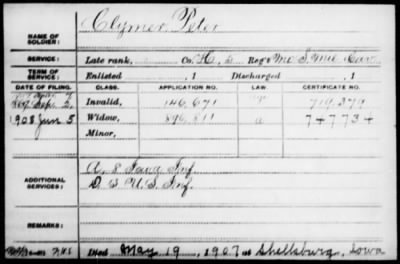 Clymer, Peter
NAME OF SOLDIER:
SERVICE: Late rank, Co. H, 5 Reg't Mo. S. Mil. Cav.
TERM OF SERVICE: Enlisted , 1 Discharged , 1
DATE OF FILING. CLASS. APPLICATION NO. LAW. CERTIFICATE NO.
Invalid, 146,671 719,379
1908 Jun 5 Widow, 896,811 a 747734
Minor,
ADDITIONAL SERVICES: A. 8 Iowa Inf.
D. 3 U.S. Inf.
REMARKS:
Died May 19, 1907 at Shellsburg, Iowa